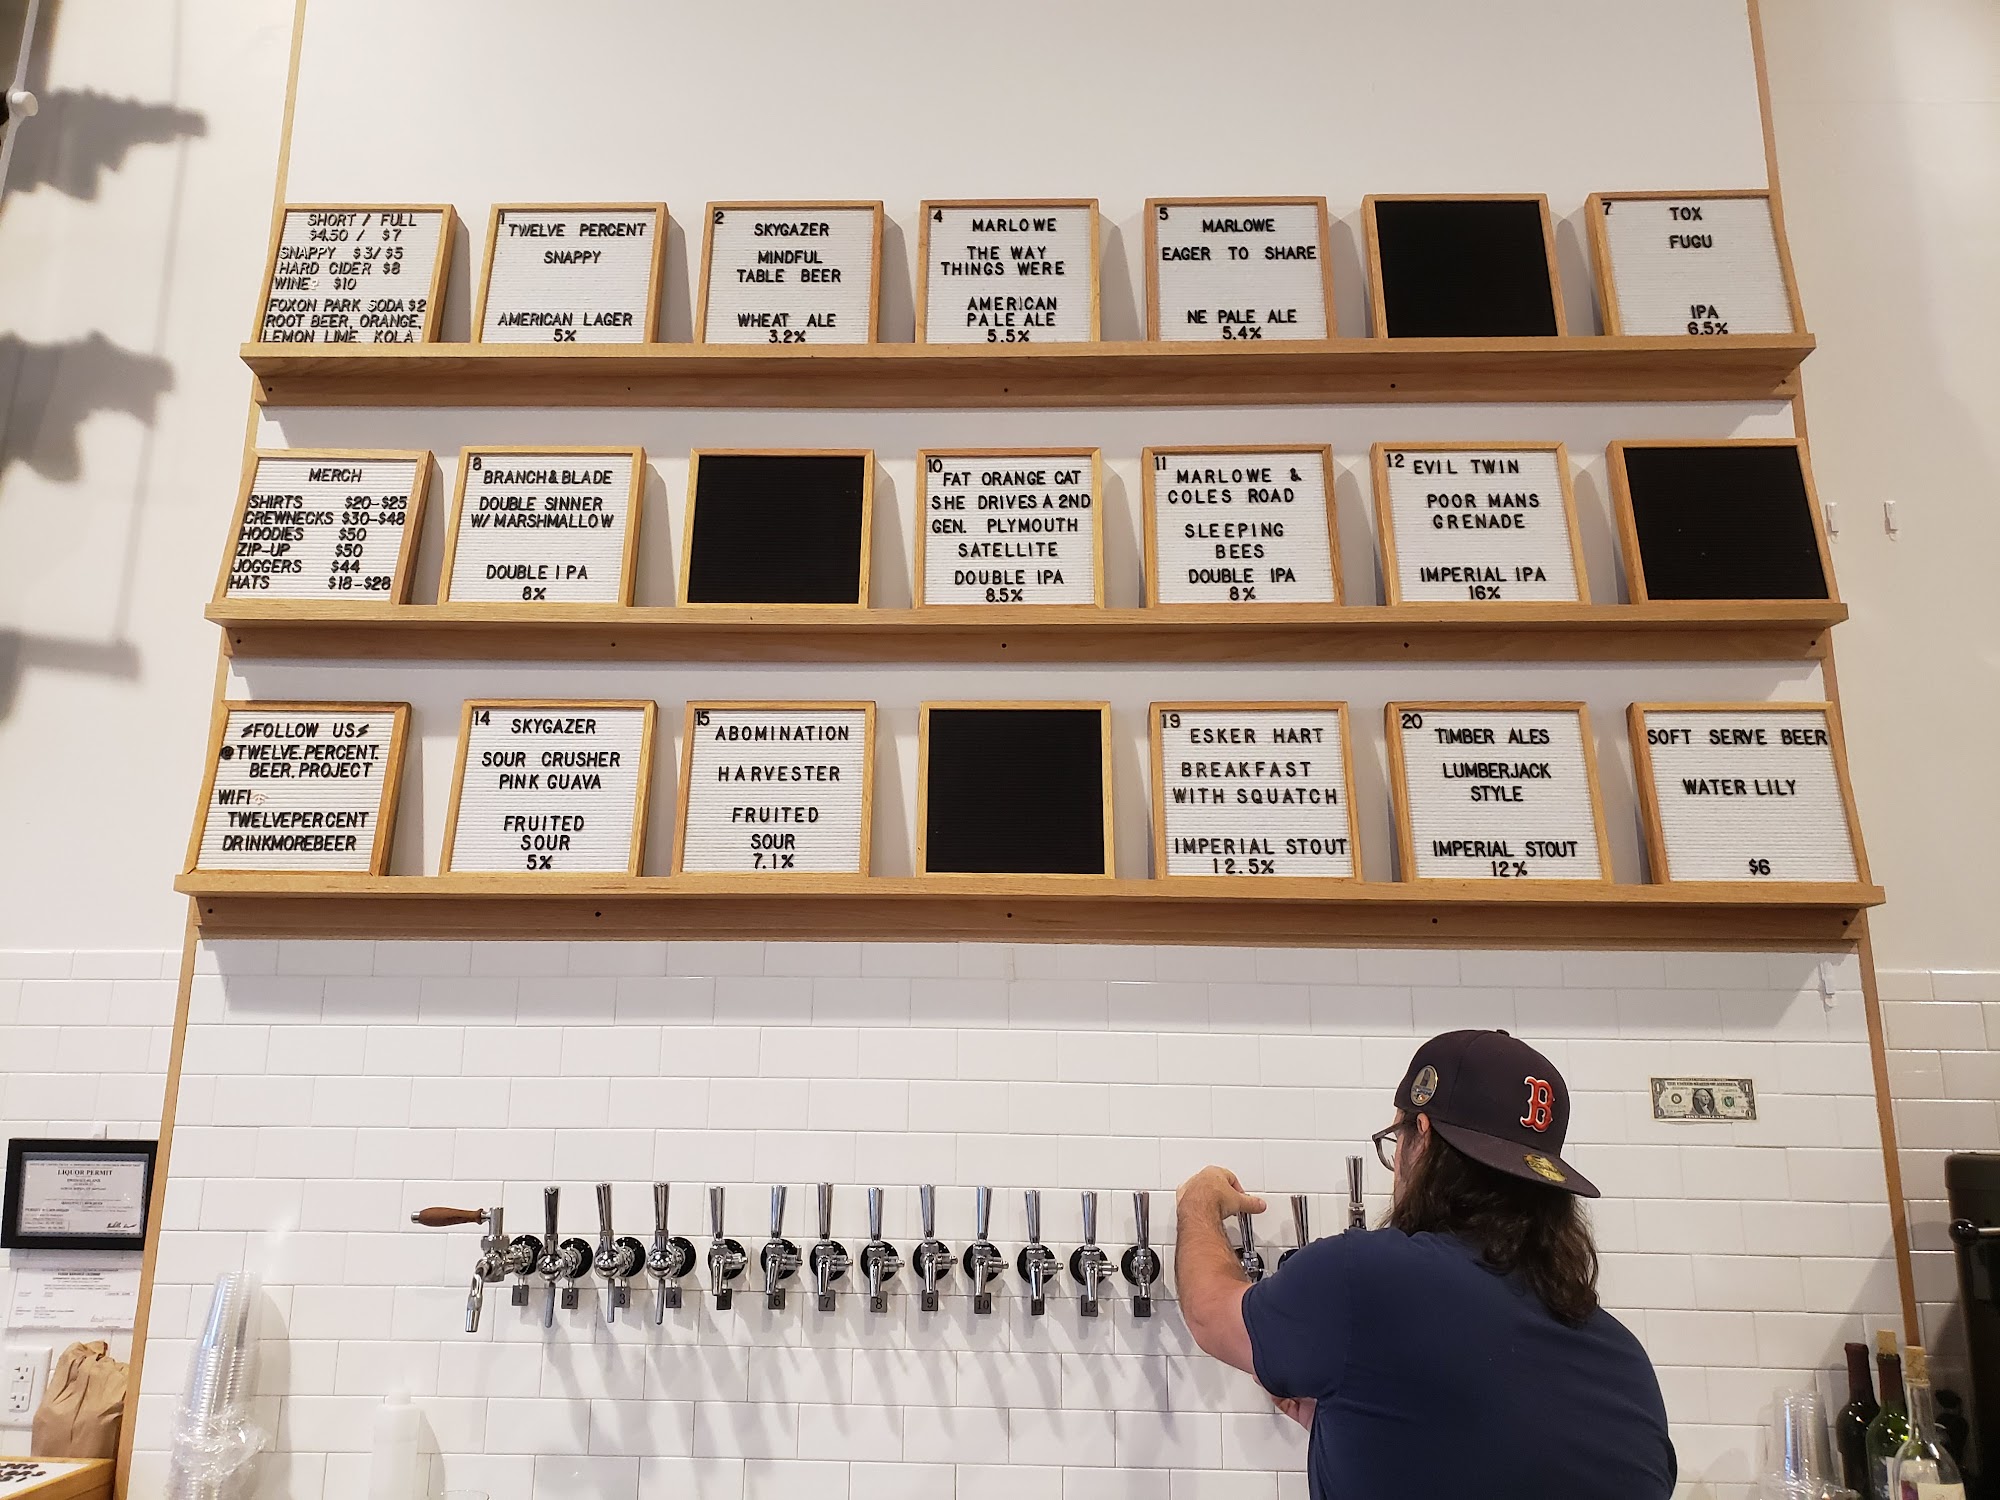 SHORT / FULL
$4.50 / $7
SNAPPY $3/$5
HARD CIDER $8
WINE $10
FOXON PARK SODA $2
ROOT BEER, ORANGE,
LEMON LIME, KOLA
1
TWELVE PERCENT
SNAPPY
AMERICAN LAGER
5%
2
SKYGAZER
MINDFUL
TABLE BEER
WHEAT ALE
3.2%
4
MARLOWE
THE WAY
THINGS WERE
AMERICAN
PALE ALE
5.5%
5
MARLOWE
EAGER TO SHARE
NE PALE ALE
5.4%
7
TOX
FUGU
IPA
6.5%
MERCH
SHIRTS $20-$25
CREWNECKS $30-$48
HOODIES $50
ZIP-UP $50
JOGGERS $44
HATS $18-$28
8
BRANCH&BLADE
DOUBLE SINNER
W/ MARSHMALLOW
DOUBLE IPA
8%
10
FAT ORANGE CAT
SHE DRIVES A 2ND
GEN. PLYMOUTH
SATELLITE
DOUBLE IPA
8.5%
11
MARLOWE &
COLES ROAD
SLEEPING
BEES
DOUBLE IPA
8%
12
EVIL TWIN
POOR MANS
GRENADE
IMPERIAL IPA
16%
FOLLOW US
@TWELVE.PERCENT.
BEER.PROJECT
WIFI
TWELVEPERCENT
DRINKMOREBEER
14
SKYGAZER
SOUR CRUSHER
PINK GUAVA
FRUITED
SOUR
5%
15
ABOMINATION
HARVESTER
FRUITED
SOUR
7.1%
19
ESKER HART
BREAKFAST
WITH SQUATCH
IMPERIAL STOUT
12.5%
20
TIMBER ALES
LUMBERJACK
STYLE
IMPERIAL STOUT
12%
SOFT SERVE BEER
WATER LILY
$6
B
LIQUOR PERMIT
1
2
3
4
5
6
7
8
9
10
11
12
13